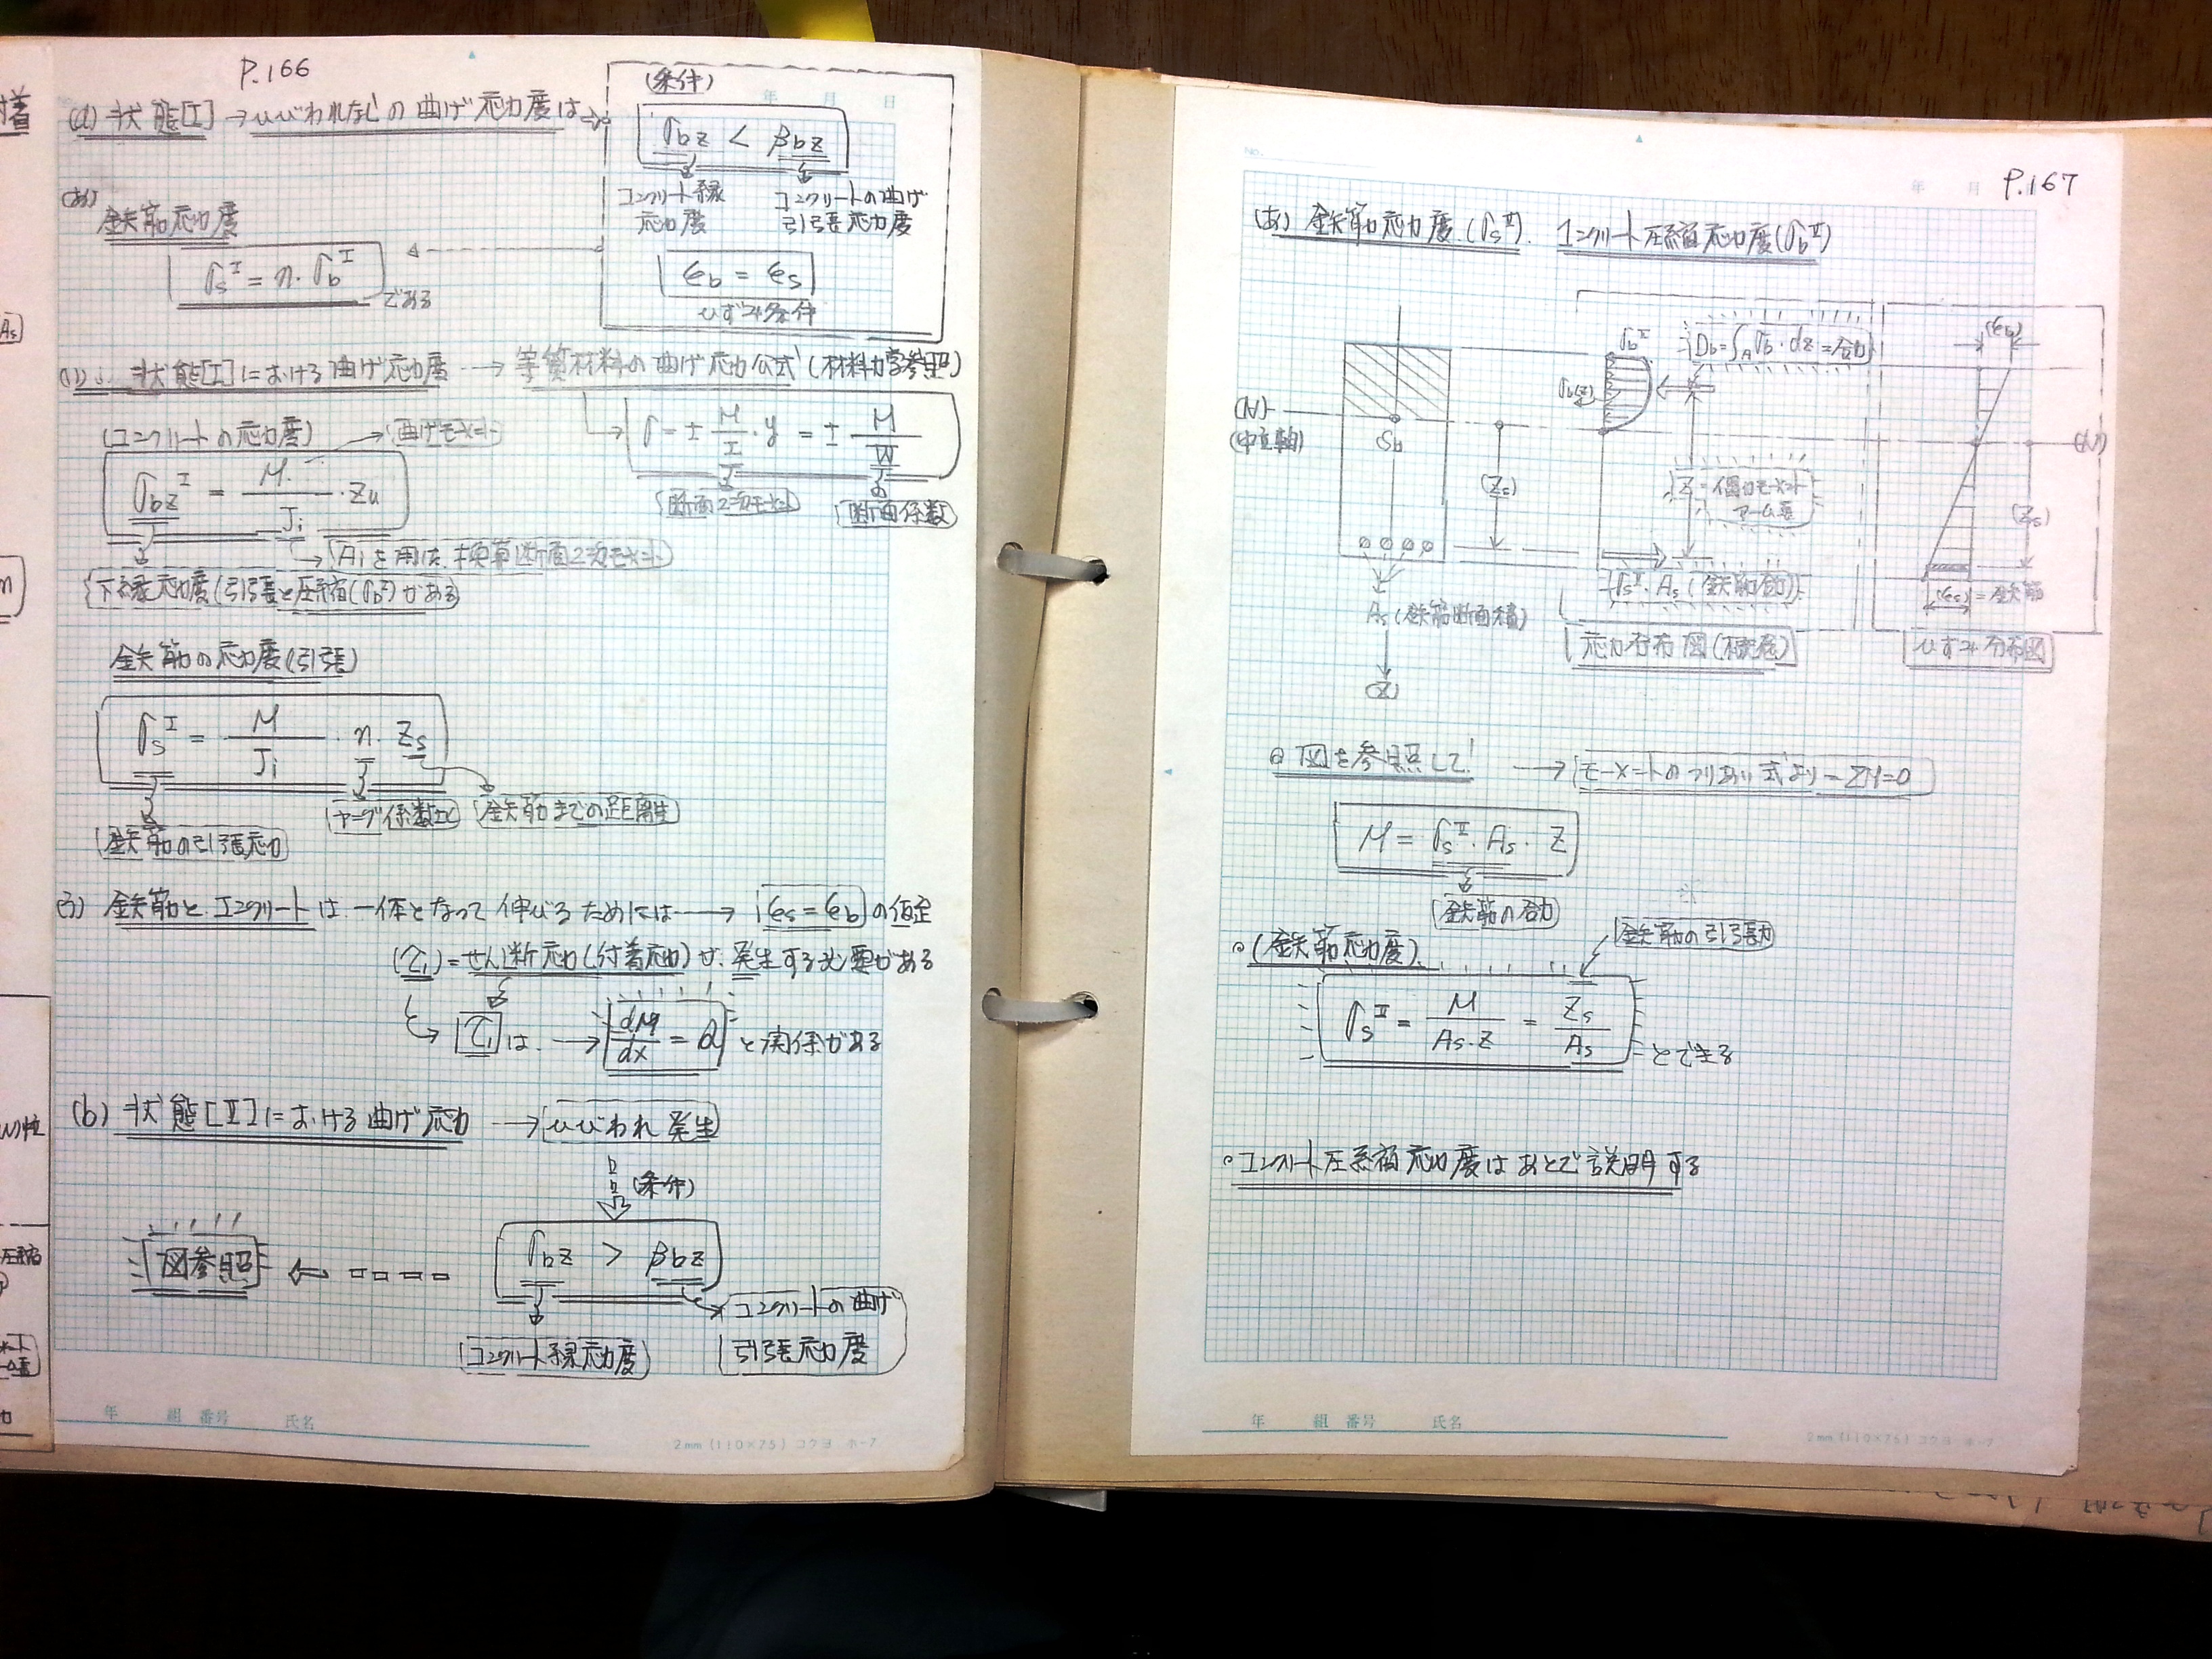 P.166
(a) 状態[I] → ひびわれなしの曲げ応力度は
(条件)
σbz < βbz
コンクリート縁
応力度
コンクリートの曲げ
引張応力度
εb = εs
ひずみ条件
(あ)
鉄筋応力度
σs^I = n・σb^I
である
(い) 状態[I]における曲げ応力度 → 等質材料の曲げ応力公式(材料力学参照)
(コンクリートの応力度)
曲げモーメント
σ = ± M/I・y = ± M/W
断面2次モーメント
断面係数
σbz^I = M/Ji・Zu
Aiを用いた換算断面2次モーメント
下縁応力度(引張と圧縮(σb^I)がある
鉄筋の応力度(引張)
σs^I = M/Ji・n・Zs
ヤング係数比
鉄筋までの距離
鉄筋の引張応力
(う) 鉄筋とコンクリートは一体となって伸びるためには → εs = εb の仮定
(τ1) = せん断応力(付着応力)が、発生する必要がある
τ1 は → dM/dx = Q と関係がある
(b) 状態[II]における曲げ応力 → ひびわれ発生
(条件)
図参照
σbz > βbz
コンクリートの曲げ
引張応力度
コンクリート縁応力度
年 組 番号 氏名
2mm (110×75) コクヨ ホ-7
No.
年 月
P.167
(あ) 鉄筋応力度(σs^II)、コンクリート圧縮応力度(σb^II)
σb^I
Db = ∫A σb・dz = 合力
(εb)
σb(z)
(N)
(中立軸)
Sb
(Zs)
Z = 偶力モーメント
アーム長
(N)
(Zs)
σs^I・As (鉄筋合力)
(εs) = 鉄筋
As (鉄筋断面積)
応力分布図(概念)
ひずみ分布図
(Z)
図を参照して! → モーメントのつりあい式より ΣM=0
M = σs^I・As・Z
鉄筋の合力
(鉄筋応力度)
鉄筋の引張力
σs^I = M/As・Z = Zs/As
とできる
コンクリート圧縮応力度はあとで説明する
年 組 番号 氏名
2mm (110×75) コクヨ ホ-7